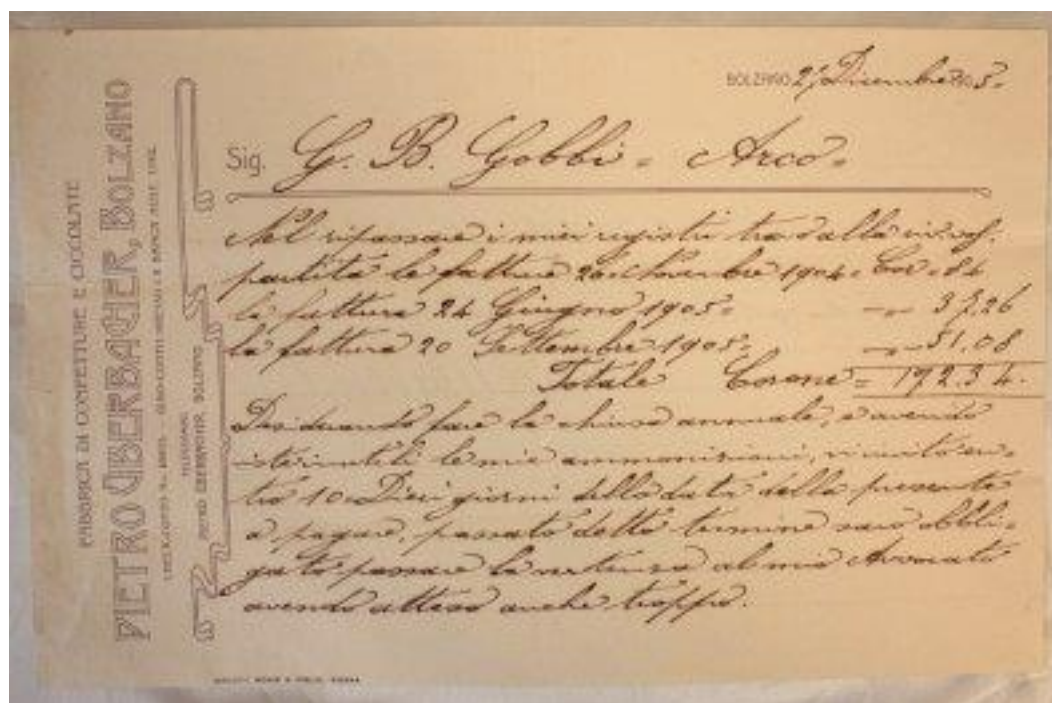 FABBRICA DI CONFETTURE E CIOCCOLATE
PIETRO ÜBERBACHER, BOLZANO
TELEGRAMMI:
PIETRO UEBERBACHER, BOLZANO
BOLZANO, 27 Dicembre 1905.
Sig. G. B. Gobbi = Arco =
Nel ripassare i miei registri trovo alla
partita le fatture 26 Novembre 1904 = Cor = 84
la fattura 24 Giugno 1905 = 37.26
la fattura 20 Settembre 1905 = 51.08
Totale Corone = 192.34.
Desiderando fare la chiusa annuale, e avendo
le mie ammonizioni, vi invito en=
tro 10 Dieci giorni dalla data della presente
a pagare, passato detto termine sarò obbli=
gato passare la vertenza al mio Avvocato
avendo atteso anche troppo.